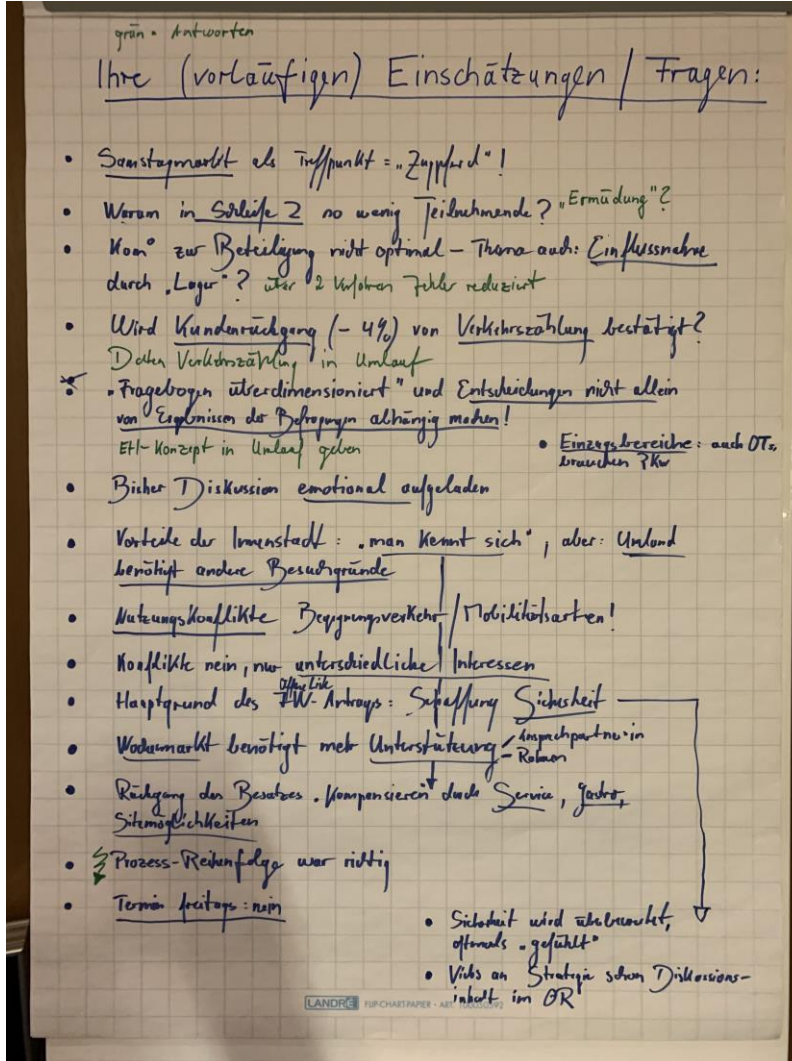 grün = Antworten
Ihre (vorläufigen) Einschätzungen / Fragen:
• Samstagmarkt als Treffpunkt = "Zugpferd"!
• Warum in Schleife 2 so wenig Teilnehmende? "Ermüdung"?
• Kom° zur Beteiligung nicht optimal – Thema auch: Einflussnahme
durch "Lager"? über 2 Verfahren Fehler reduziert
• Wird Kundenrückgang (- 4%) von Verkehrszählung bestätigt?
Daten Verkehrszählung in Umlauf
• "Fragebogen überdimensioniert" und Entscheidungen nicht allein
von Ergebnissen der Befragungen abhängig machen!
EH-Konzept in Umlauf geben
• Einzugsbereiche: auch OTs,
brauchen PKW
• Bisher Diskussion emotional aufgeladen
• Vorteile der Innenstadt: "man kennt sich", aber: Umland
benötigt andere Besuchgründe
• Nutzungskonflikte Begegnungsverkehr / Mobilitätsarten!
• Konflikte nein, nur unterschiedliche Interessen
• Hauptgrund des FW-Antrags: Schaffung Sicherheit
• Wochenmarkt benötigt mehr Unterstützung
- Ansprechpartner*in
- Rahmen
• Rückgang des Besatzes "kompensieren" durch Service, Gastro,
Sitzmöglichkeiten
• Prozess-Reihenfolge war richtig
• Termin freitags: nein
• Sicherheit wird überbewertet,
oftmals "gefühlt"
• Vieles an Strategie schon Diskussions-
inhalt im OR
LANDRÉ FLIP-CHART-PAPIER - ART.